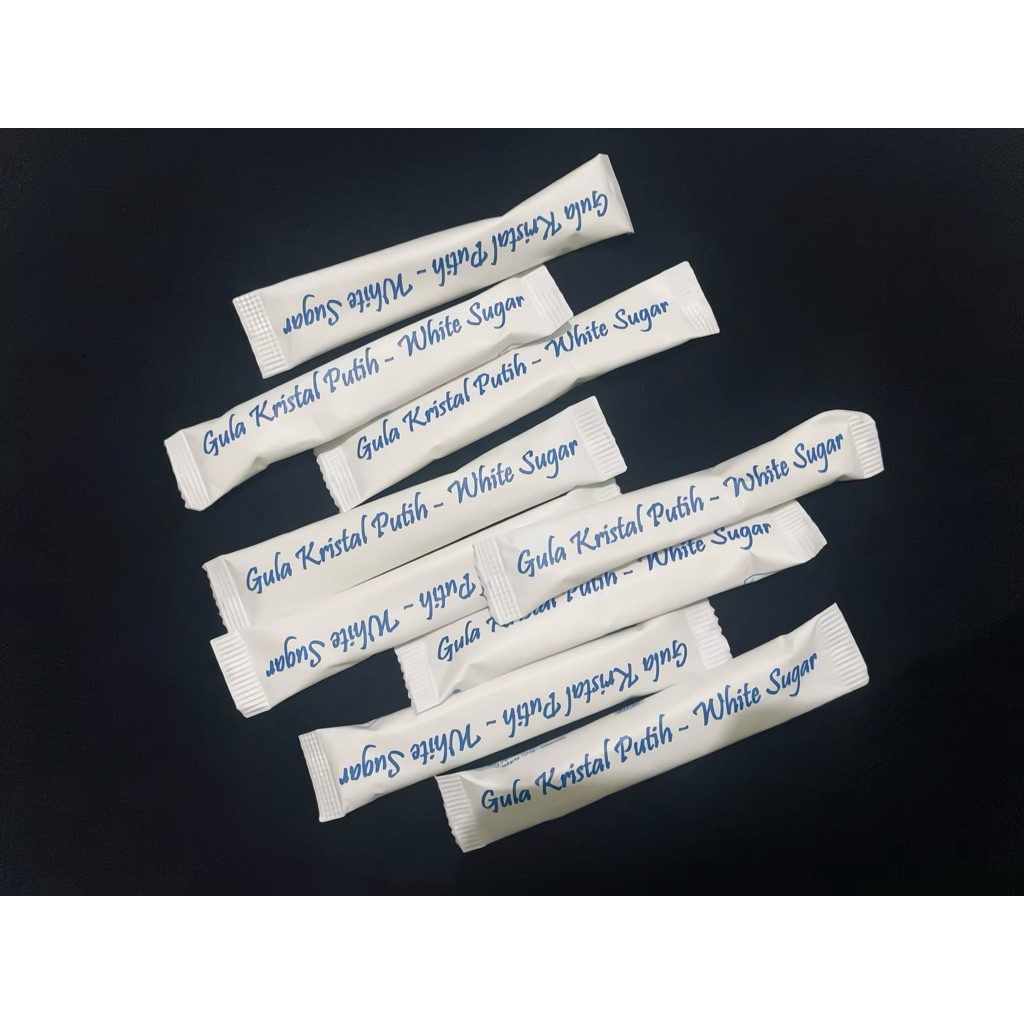 Gula Kristal Putih - White Sugar
Gula Kristal Putih - White Sugar
Gula Kristal Putih - White Sugar
Gula Kristal Putih - White Sugar
Gula Kristal Putih - White Sugar
Putih - White Sugar
Gula Kristal Putih - White Sugar
Gula Kristal Putih - White Sugar
Gula Kristal Putih - White Sugar